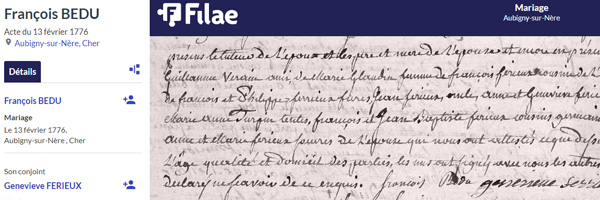 François BEDU
Acte du 13 février 1776
Aubigny-sur-Nère, Cher
Détails
François BEDU
Mariage
Le 13 février 1776,
Aubigny-sur-Nère, Cher
Son conjoint
Genevieve FERIEUX
Filae
Mariage
Aubigny-sur-Nère
de L'epoux et les pere et mere de L'epouse et encore en presence
Guillaume ami de Marie Claudine femme de françois ferieux
de francois et Philippe ferieux freres Jean ferieux, oncle, anne et Genevieve
Marie anne Turpin tentes, françois et Jean Baptiste ferieux cousins germains
anne et Marie ferieux soeurs de L'epouse qui nous ont attesté
L'âge qualité et domicil des parties, les uns ont signés avec nous les autres
declare ne scavoir de ce enquis. francois Bedu genevieve